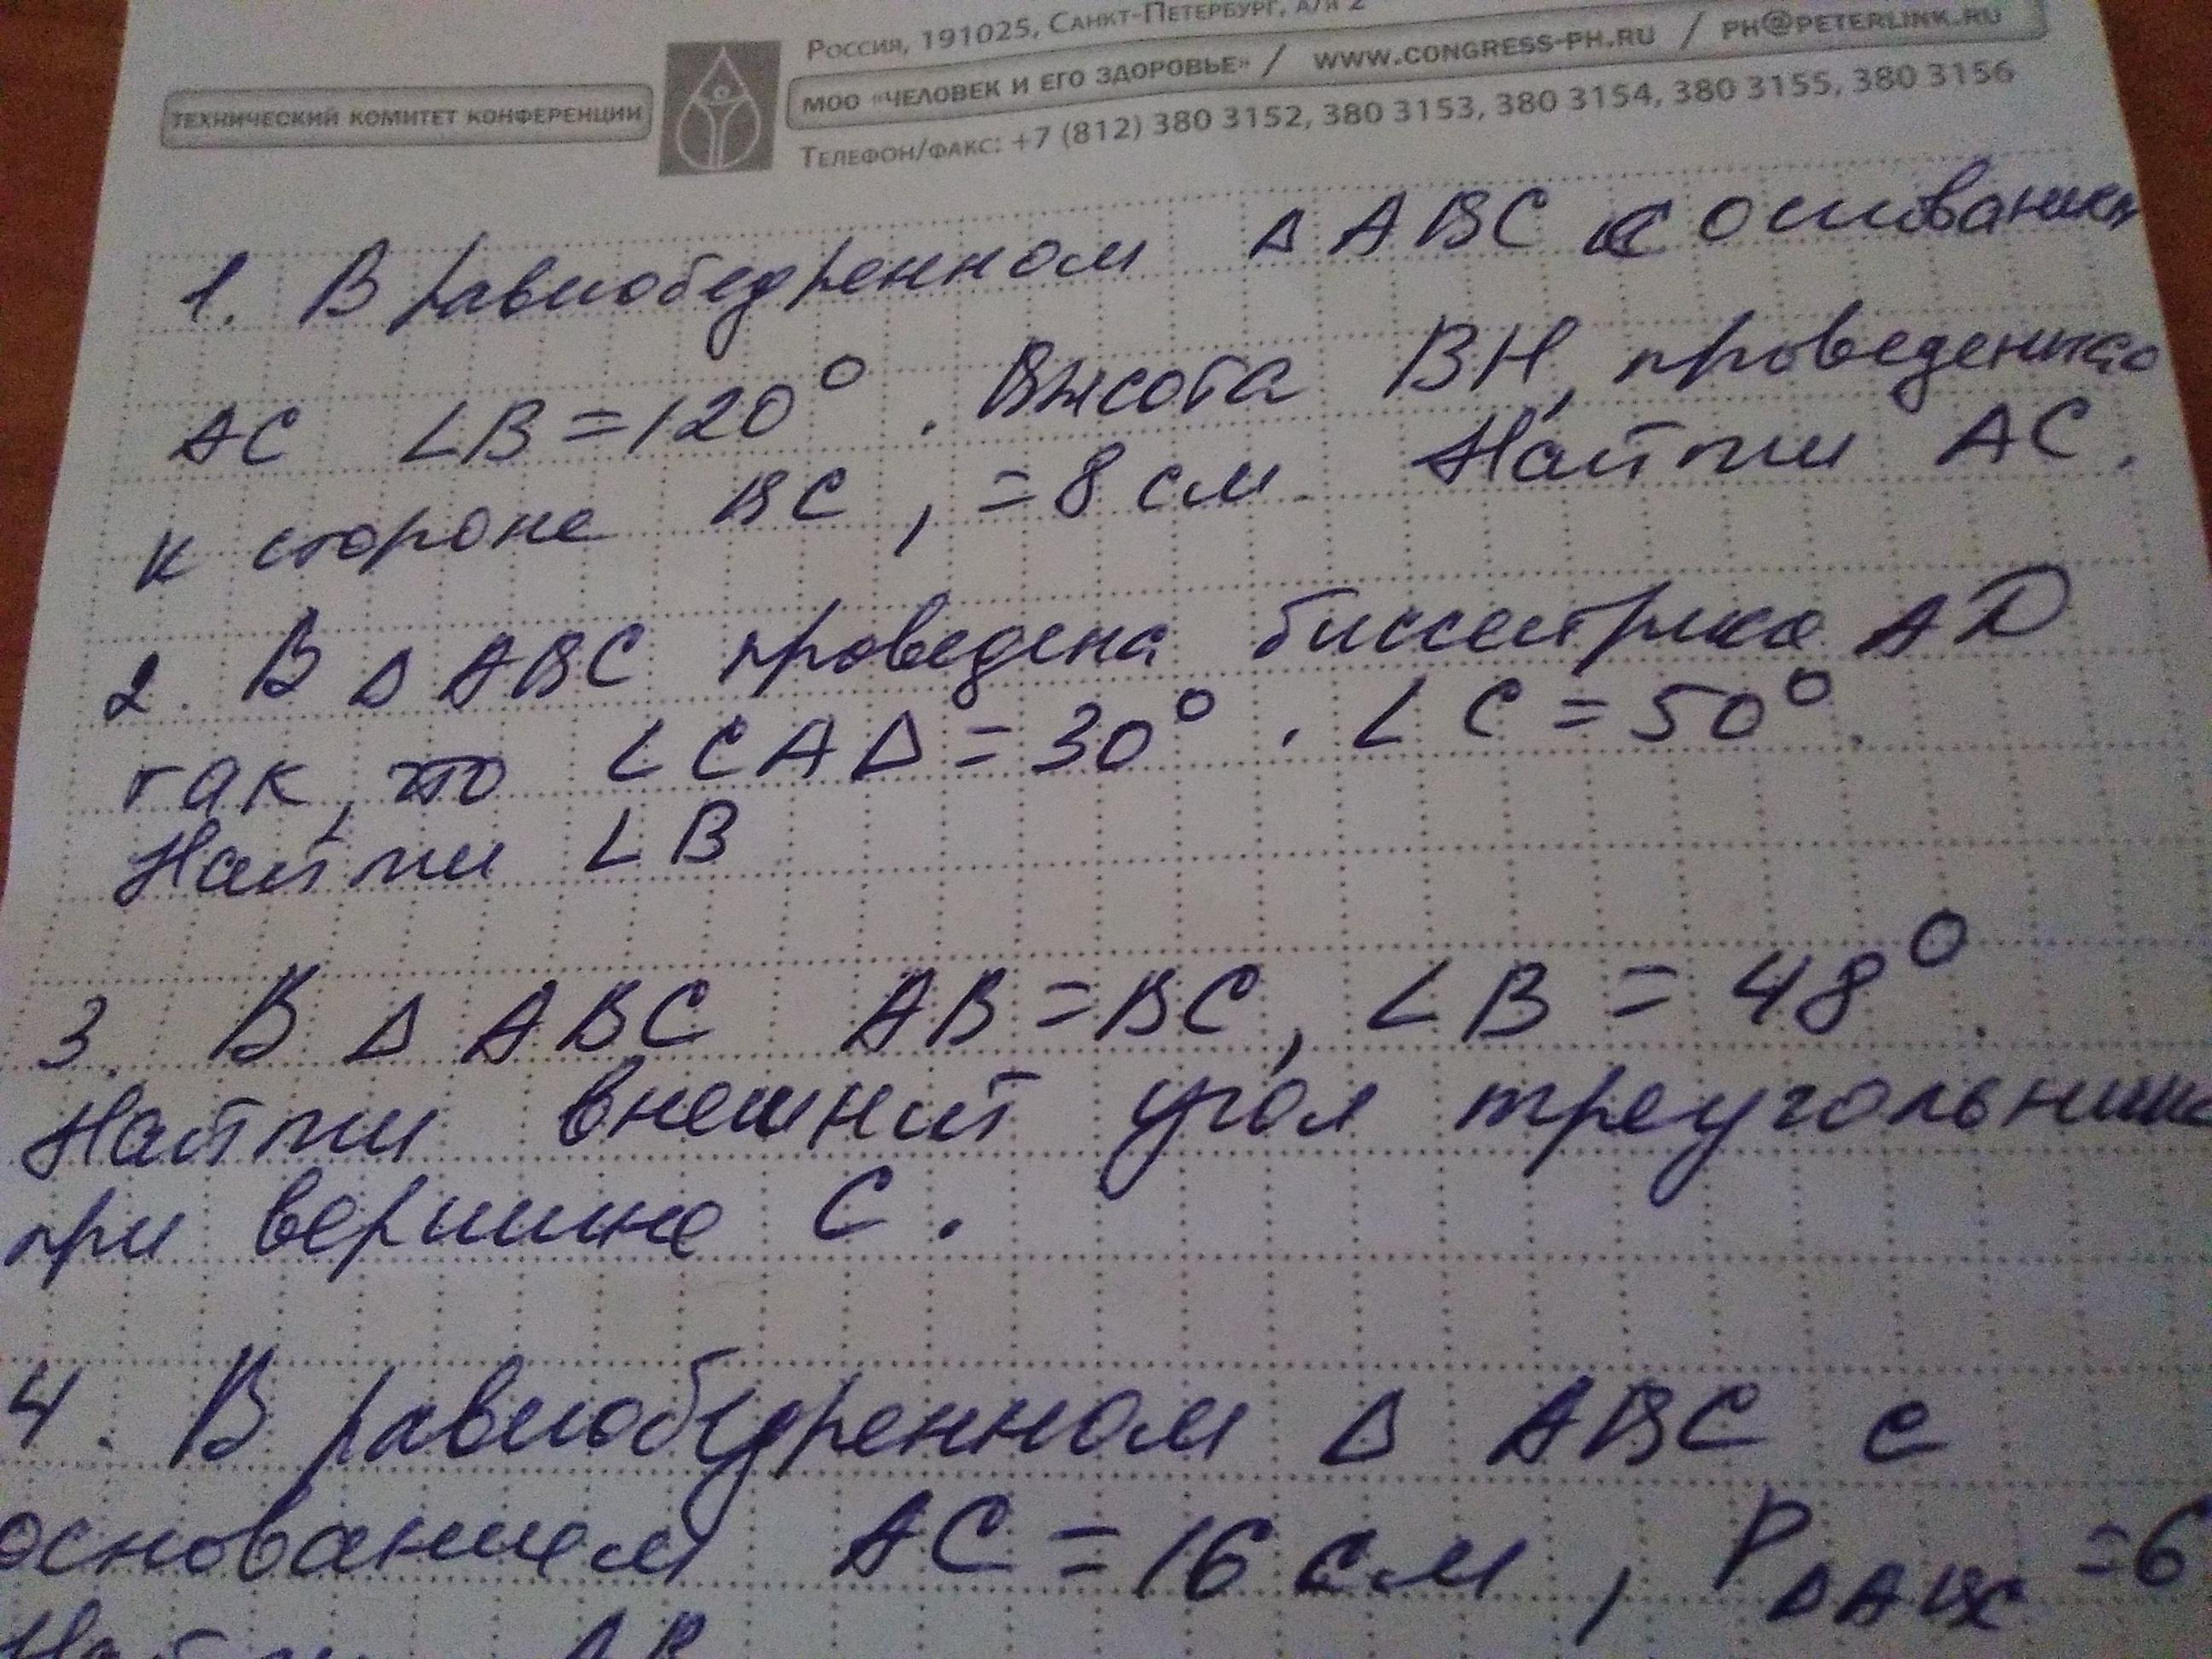 Россия, 191025, Санкт-Петербург, а/я 2
ТЕХНИЧЕСКИЙ КОМИТЕТ КОНФЕРЕНЦИИ
МОО «ЧЕЛОВЕК И ЕГО ЗДОРОВЬЕ» / WWW.CONGRESS-PH.RU / PH@PETERLINK.RU
Телефон/факс: +7 (812) 380 3152, 380 3153, 380 3154, 380 3155, 380 3156
1. В равнобедренном Δ ABC с основанием
AC ∠B=120°. Высота BH, проведенная
к стороне BC, =8 см. Найти AC.
2. В Δ ABC проведена биссектриса AD
так, что ∠CAД=30°. ∠C=50°.
Найти ∠B
3. В Δ ABC AB=BC, ∠B=48°.
Найти внешний угол треугольника
при вершине C.
4. В равнобедренном Δ ABC с
основанием AC=16 см, PΔABC=6
Найти AB